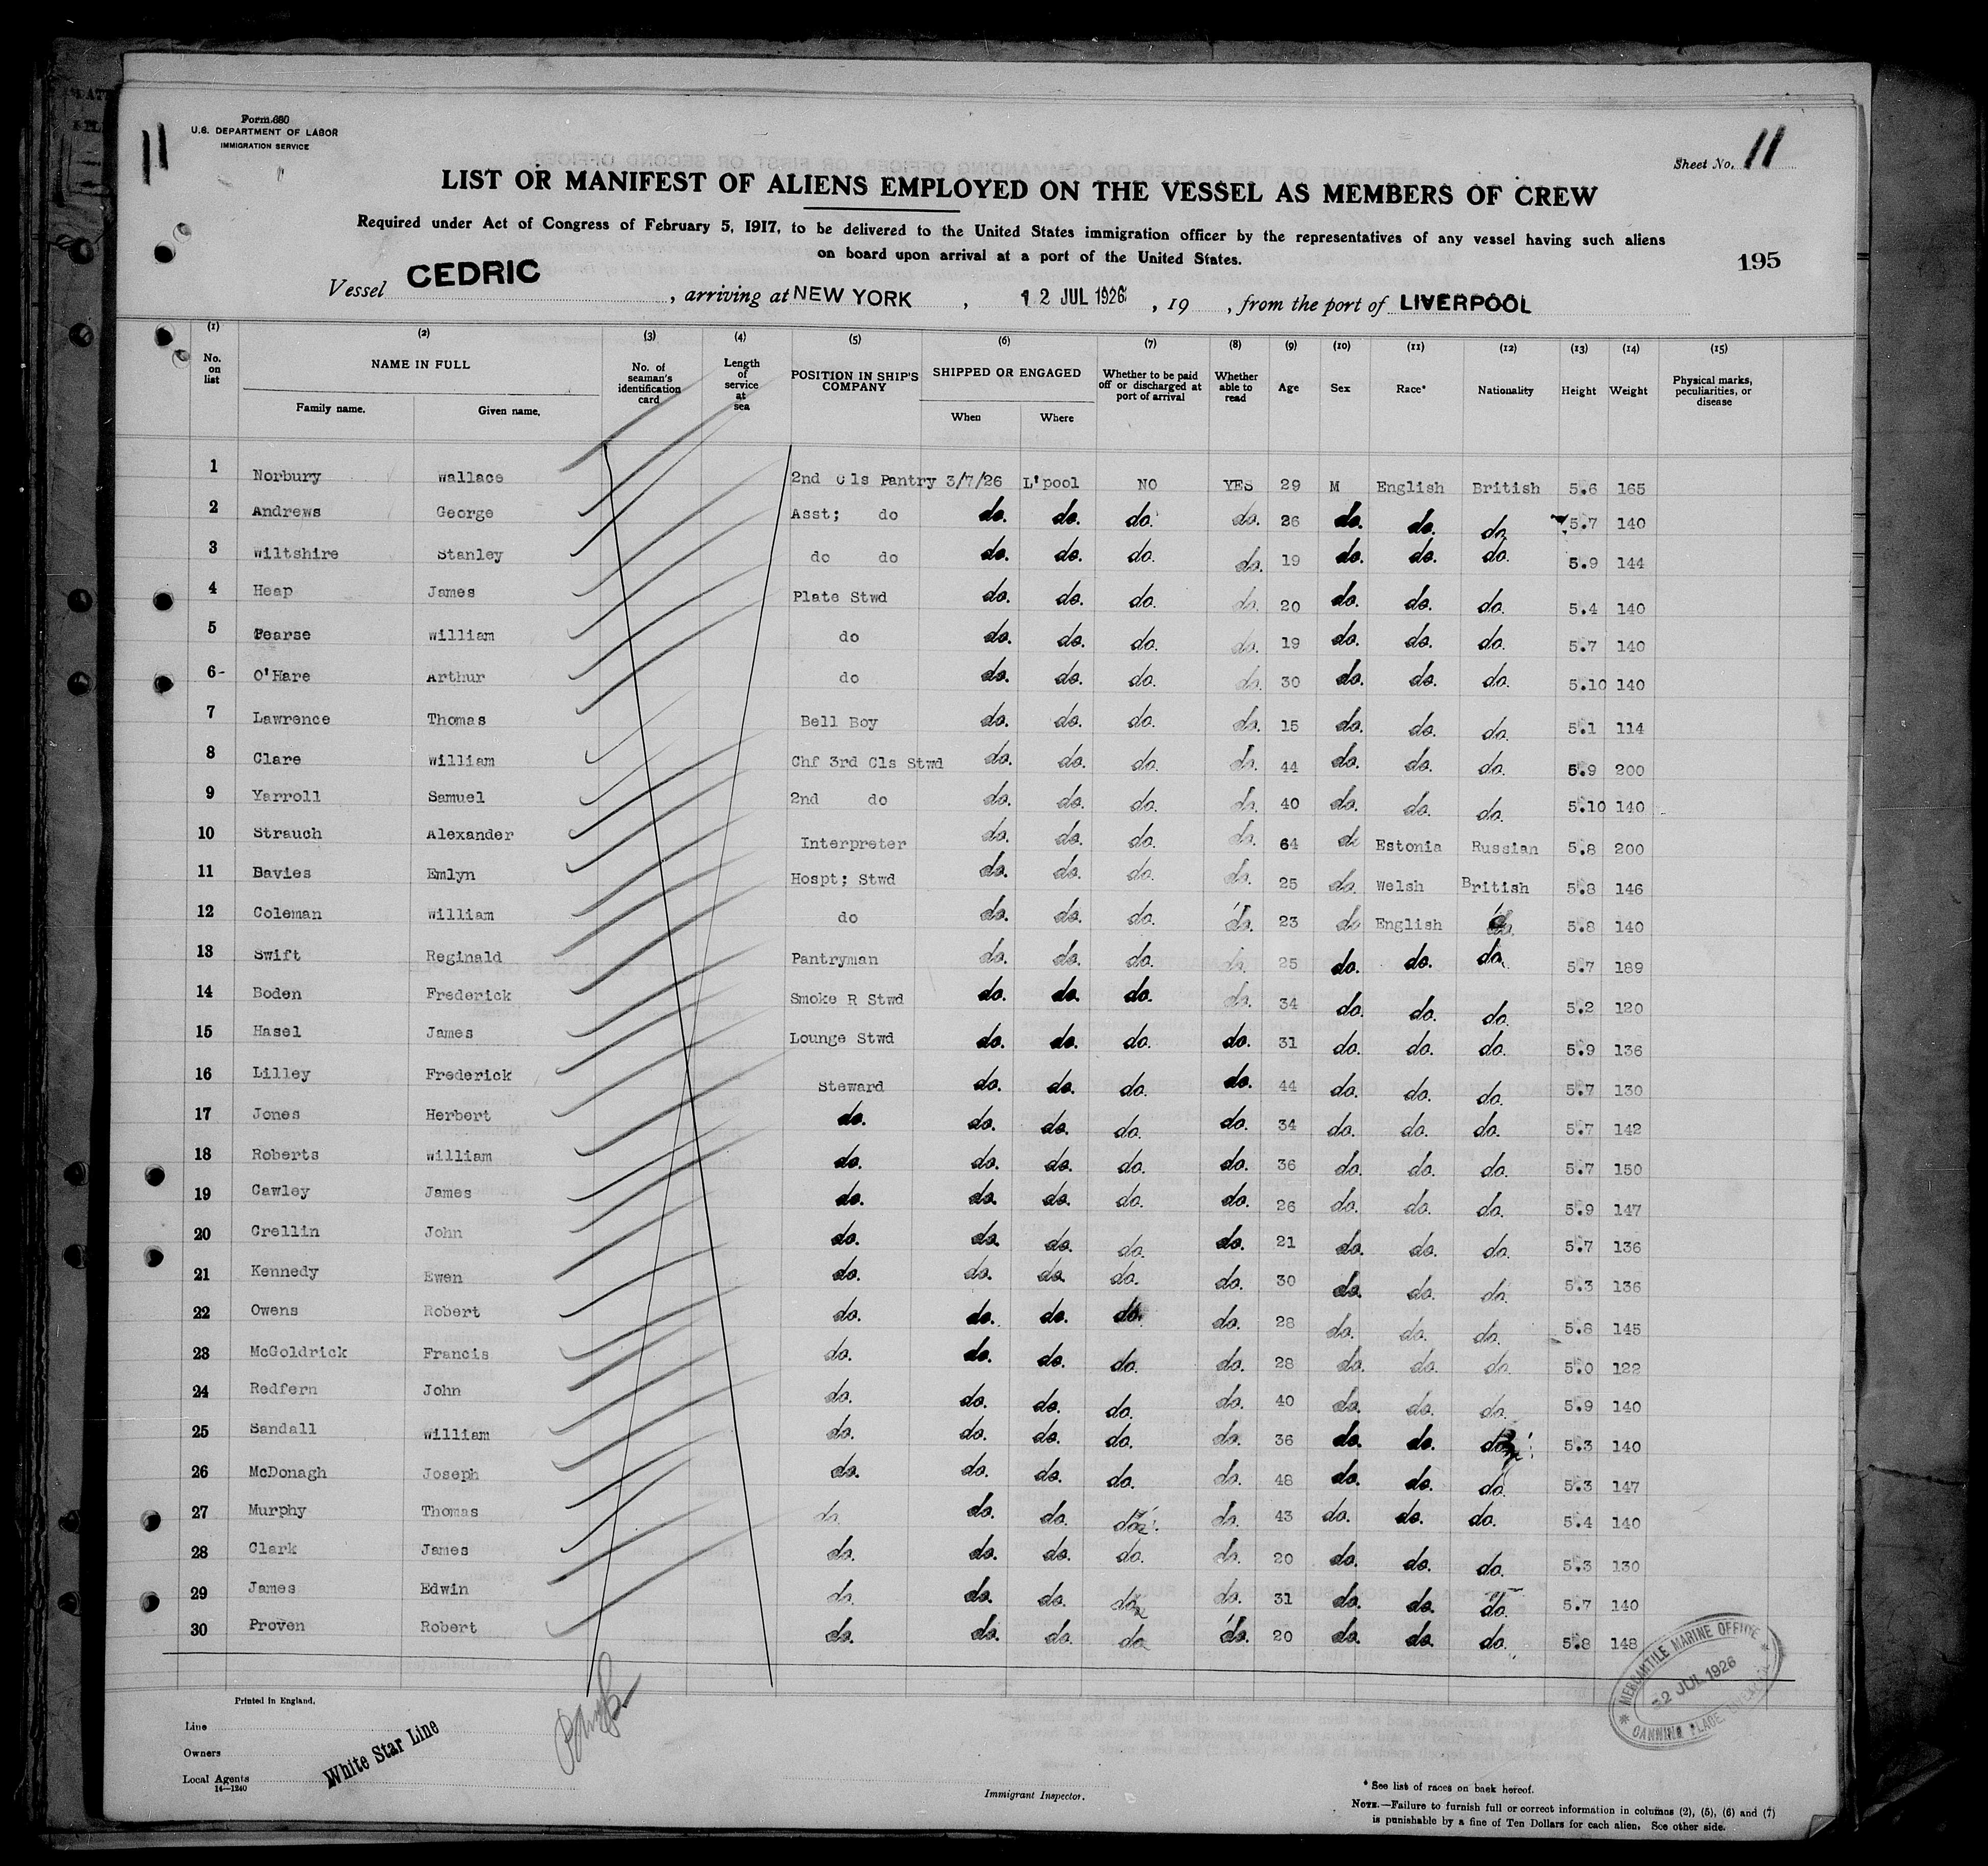 Form 680
U.S. DEPARTMENT OF LABOR
IMMIGRATION SERVICE
11
Sheet No. 11
LIST OR MANIFEST OF ALIENS EMPLOYED ON THE VESSEL AS MEMBERS OF CREW
Required under Act of Congress of February 5, 1917, to be delivered to the United States immigration officer by the representatives of any vessel having such aliens
on board upon arrival at a port of the United States.
195
Vessel CEDRIC, arriving at NEW YORK, 12 JUL 1926, 19 , from the port of LIVERPOOL
(1) (2) (3) (4) (5) (6) (7) (8) (9) (10) (11) (12) (13) (14) (15)
No. on list NAME IN FULL Family name. Given name. No. of seaman's identification card Length of service at sea POSITION IN SHIP'S COMPANY SHIPPED OR ENGAGED When Where Whether to be paid off or discharged at port of arrival Whether able to read Age Sex Race* Nationality Height Weight Physical marks, peculiarities, or disease
1 Norbury Wallace 2nd Cls Pantry 3/7/26 L'pool NO YES 29 M English British 5.6 165
2 Andrews George Asst; do do. do. do. do. 26 do. do. do. 5.7 140
3 Wiltshire Stanley do do do. do. do. do. 19 do. do. do. 5.9 144
4 Heap James Plate Stwd do. do. do. do. 20 do. do. do. 5.4 140
5 Pearse William do do. do. do. do. 19 do. do. do. 5.7 140
6- O'Hare Arthur do do. do. do. do. 30 do. do. do. 5.10 140
7 Lawrence Thomas Bell Boy do. do. do. do. 15 do. do. do. 5.1 114
8 Clare William Chf 3rd Cls Stwd do. do. do. do. 44 do. do. do. 5.9 200
9 Yarroll Samuel 2nd do do. do. do. do. 40 do. do. do. 5.10 140
10 Strauch Alexander Interpreter do. do. do. do. 64 do Estonia Russian 5.8 200
11 Davies Emlyn Hospt; Stwd do. do. do. do. 25 do. Welsh British 5.8 146
12 Coleman William do do. do. do. do. 23 do English do. 5.8 140
13 Swift Reginald Pantryman do. do. do. do. 25 do. do. do. 5.7 189
14 Boden Frederick Smoke R Stwd do. do. do. do. 34 do. do. do. 5.2 120
15 Hasel James Lounge Stwd do. do. do. do. 31 do. do. do. 5.9 136
16 Lilley Frederick Steward do. do. do. do. 44 do. do. do. 5.7 130
17 Jones Herbert do. do. do. do. do. 34 do. do. do. 5.7 142
18 Roberts William do. do. do. do. do. 36 do. do. do. 5.7 150
19 Cawley James do. do. do. do. do. 26 do. do. do. 5.9 147
20 Crellin John do. do. do. do. do. 21 do. do. do. 5.7 136
21 Kennedy Ewen do. do. do. do. do. 30 do. do. do. 5.3 136
22 Owens Robert do. do. do. do. do. 28 do. do. do. 5.8 145
23 McGoldrick Francis do. do. do. do. do. 28 do. do. do. 5.0 122
24 Redfern John do. do. do. do. do. 40 do. do. do. 5.9 140
25 Sandall William do. do. do. do. do. 36 do. do. do. 5.3 140
26 McDonagh Joseph do. do. do. do. do. 48 do. do. do. 5.3 147
27 Murphy Thomas do. do. do. do. do. 43 do. do. do. 5.4 140
28 Clark James do. do. do. do. do. 20 do. do. do. 5.3 130
29 James Edwin do. do. do. do. do. 31 do. do. do. 5.7 140
30 Proven Robert do. do. do. do. do. 20 do. do. do. 5.8 148
MERCANTILE MARINE OFFICE
2 JUL 1926
CANNING PLACE, LIVERPOOL
Printed in England.
Line
Owners
Local Agents
White Star Line
14—1240
Immigrant Inspector.
* See list of races on back hereof.
NOTE.—Failure to furnish full or correct information in columns (2), (5), (6) and (7)
is punishable by a fine of Ten Dollars for each alien. See other side.